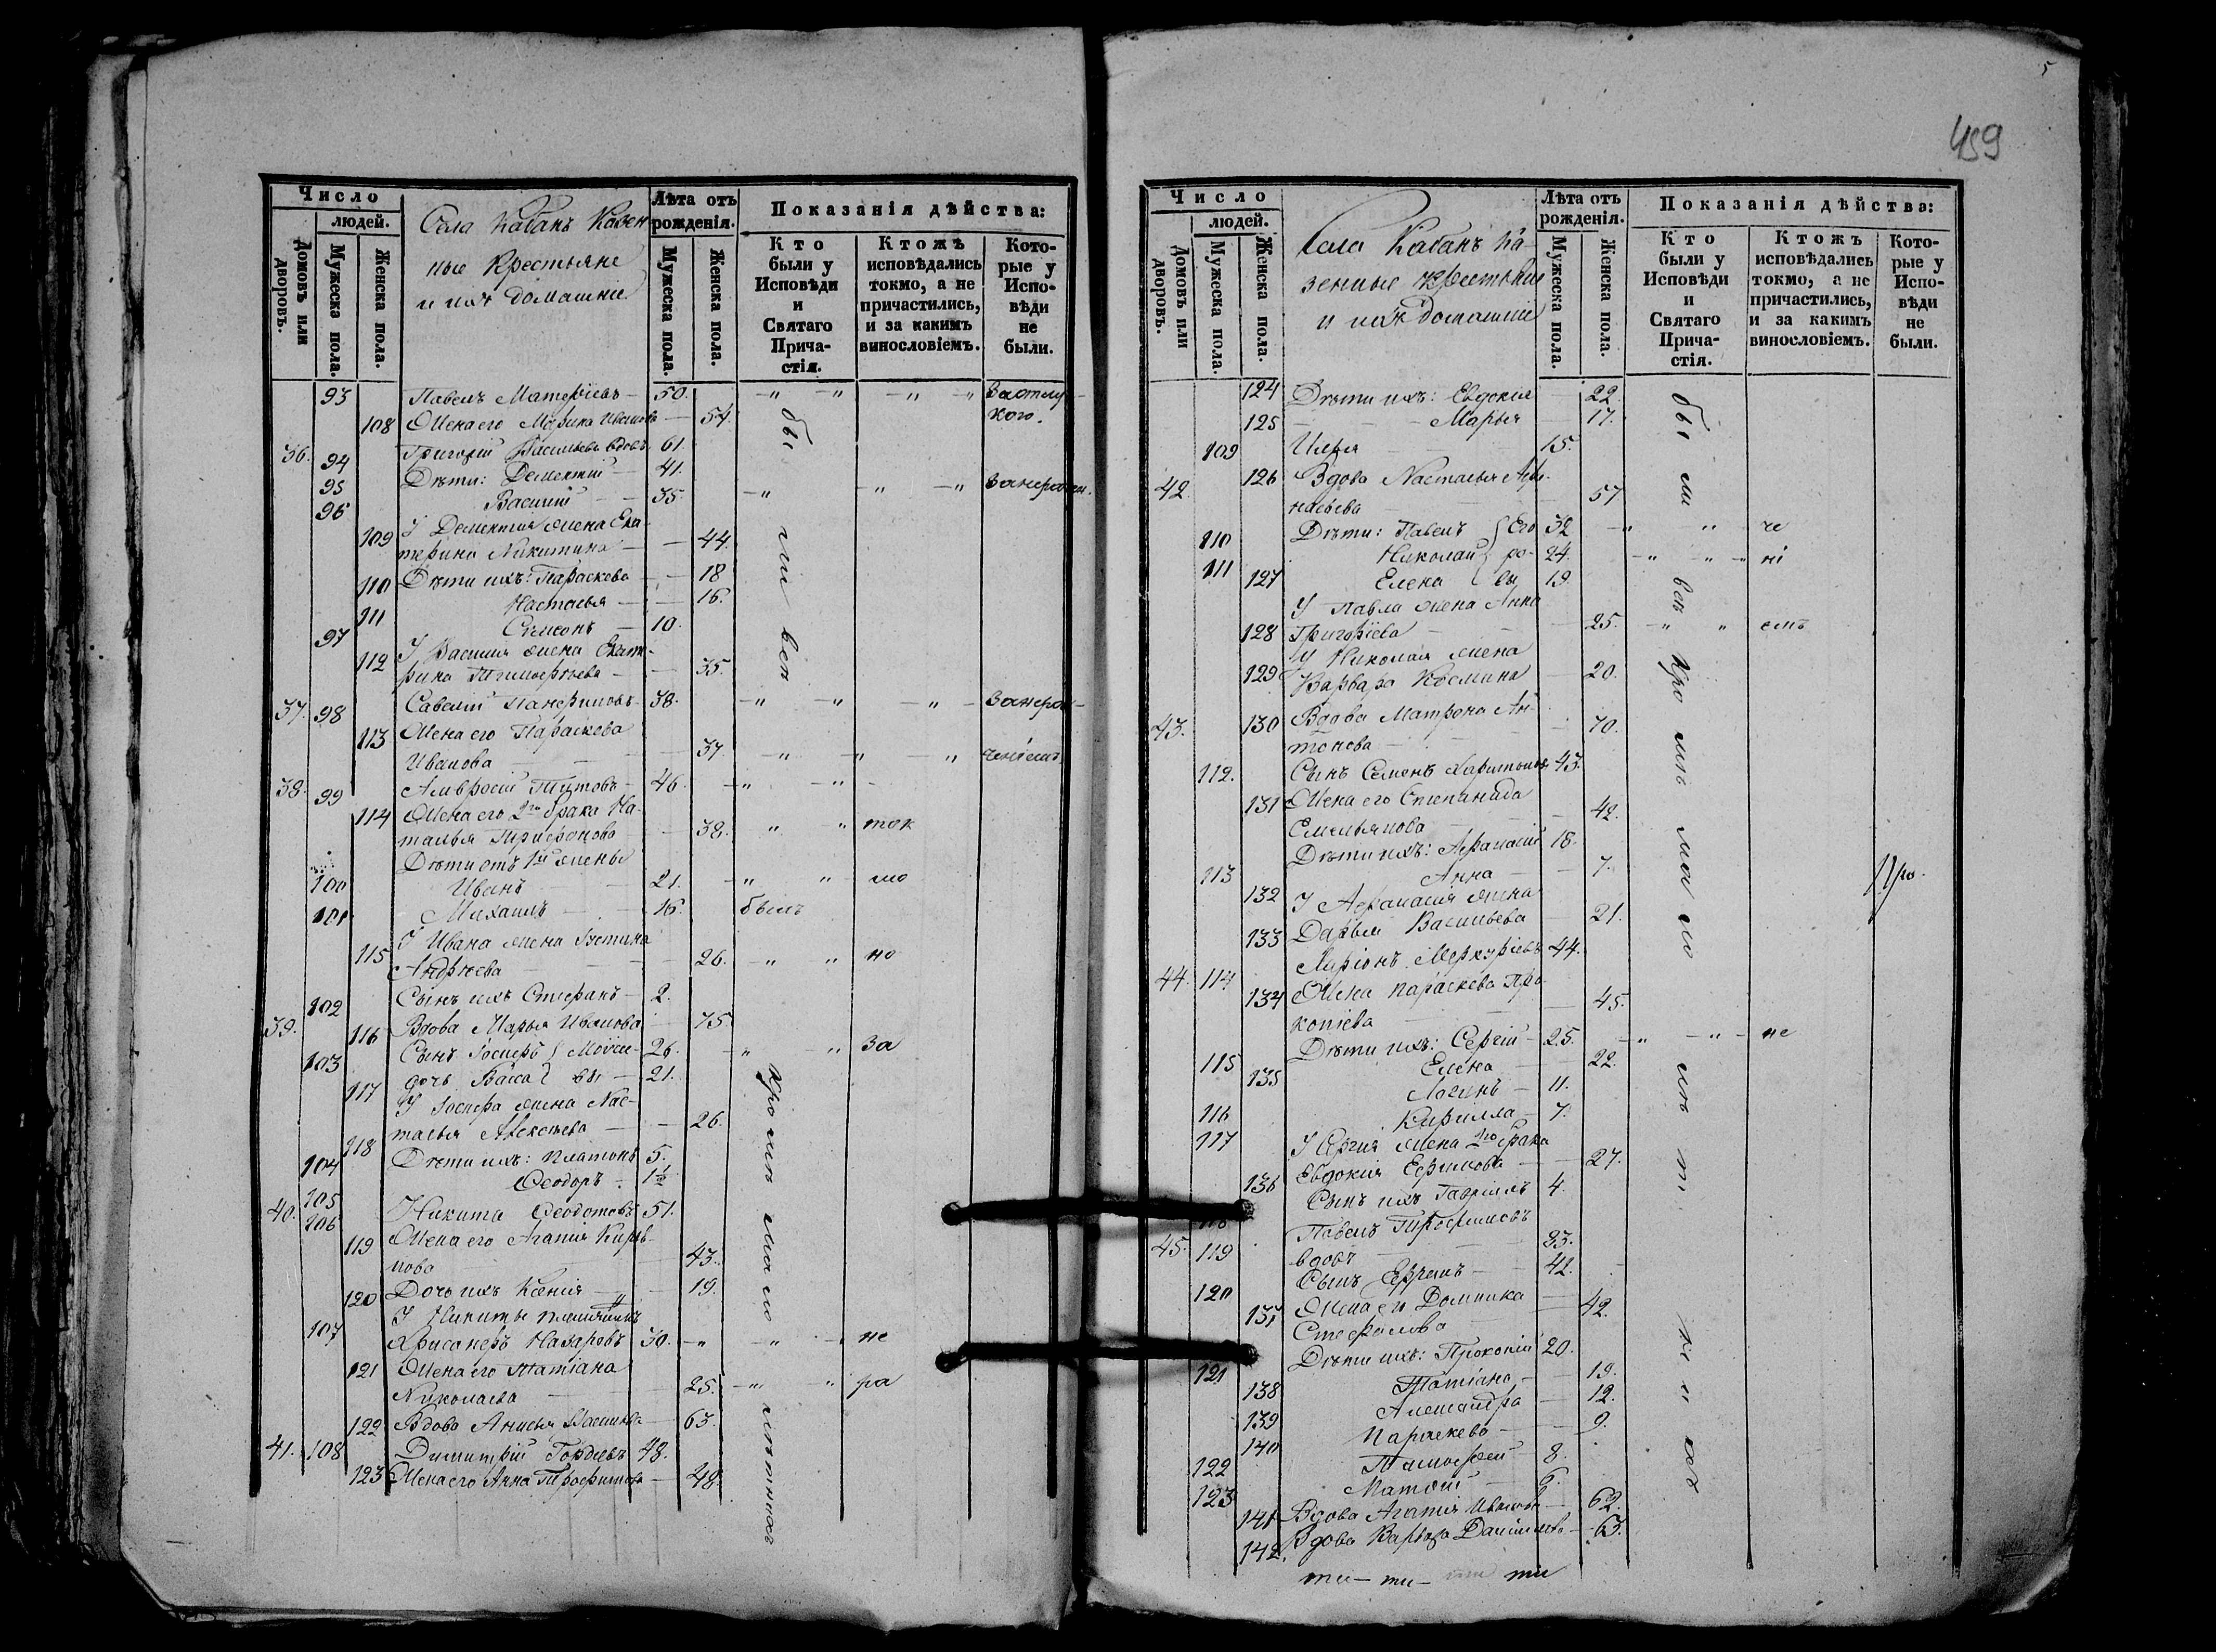 Число
людей.
Домовъ или дворовъ.
Мужеска пола.
Женска пола.
Села Кабанъ Казен
ные Крестьяне
и ихъ домашніе
Лѣта отъ рожденія.
Мужеска пола.
Женска пола.
Показанія дѣйства:
Кто были у Исповѣди и Святаго Причастія.
Ктожъ исповѣдались токмо, а не причастились, и за какимъ винословіемъ.
Которые у Исповѣди не были.
93 Павелъ Матвѣевъ 50. за отлуч-
108 Жена его Марина Иванова 54. кого.
36. 94 Григорій Васильевъ вдовъ 61.
95 Дѣти: Дементій 41.
96 Василій 35. за нерач
109 У Дементія жена Ека-
терина Никитина 44.
110 Дѣти ихъ: Параскева 18
111 Настасья 16.
97 Симеонъ 10.
112 У Василія жена Екате-
рина Тимофѣева 35.
37. 98 Савелій Панфиловъ 38. за нера-
113 Жена его Параскева
Иванова 37. ченіемъ
38. 99 Амвросій Титовъ 46.
114 Жена его 2го брака На-
талья Трифонова 38. ток
Дѣти отъ 1й жены
100 Иванъ 21. мо
101 Михаилъ 16. былъ
115 У Ивана жена Устина
Андреева 26. но
102 Сынъ ихъ Стефанъ 2.
39. 116 Вдова Марья Иванова 75.
103 Сынъ Іосифъ Моисе- 26. за
117 дочь Васса вы 21.
У Іосифа жена Нас-
118 тасья Алексѣева 26.
104 Дѣти ихъ: Платонъ 5.
105 Ѳеодоръ 1½
40. 106 Никита Ѳеодотовъ 51.
119 Жена его Агапія Кирил-
лова 43.
120 Дочь ихъ Ксенія 19.
У Никиты племянникъ
107 Хрисанфъ Назаровъ 30. не
121 Жена его Татіана
Николаева 25. ра
122 Вдова Анисья Васильева 63.
41. 108 Димитрій Гордѣевъ 48.
123 Жена его Анна Трофимова 48.
бы ли всѣ кромѣ малолѣтнихъ
5
459
Число
людей.
Домовъ или дворовъ.
Мужеска пола.
Женска пола.
Села Кабанъ Ка-
зенные крестьяне
и ихъ домашніе
Лѣта отъ рожденія.
Мужеска пола.
Женска пола.
Показанія дѣйства:
Кто были у Исповѣди и Святаго Причастія.
Ктожъ исповѣдались токмо, а не причастились, и за какимъ винословіемъ.
Которые у Исповѣди не были.
124 Дѣти ихъ: Евдокія 22.
125 Марья 17.
109 Илья 15.
42. 126 Вдова Настасья
57
110 Дѣти: Павелъ Его 32 че
111 Николай ро- 24. ні
127 Елена вы 19.
У Павла жена Анна
128 Григоріева 25. емъ
У Николая жена
129 Варвара Косьмина 20.
43. 130 Вдова Матрона Ан-
тонова 70.
112. Сынъ Семенъ Харитоновъ 43.
131 Жена его Степанида
Емельянова 42.
113 Дѣти ихъ: Афанасій 18.
132 Анна 7.
У Афанасія жена
133 Дарья Васильева 21.
44. 114 Ларіонъ Меркурьевъ 44.
134 Жена Параскева Про-
копіева 45.
115 Дѣти ихъ: Сергій 25. не
135 Елена 22.
116 Логинъ 11.
117 Кирилла 7.
У Сергія жена 2го брака
136 Евдокія Ефимова 27.
118 Сынъ ихъ Гавріилъ 4.
45. 119 Павелъ Трофимовъ
вдовъ 83.
120 Сынъ Ефремъ 42.
137 Жена его Домника
Стефанова 42.
121 Дѣти ихъ: Прокопій 20.
138 Татіана 19.
139 Александра 12.
140 Параскева 9.
122 Тимофей 8.
123 Матвій 6.
141 Вдова Агапія Иванова 62.
142. Вдова Варвара Данилова 63.
бы ли всѣ кромѣ малолѣтнихъ
Про-
ти- ти- ти